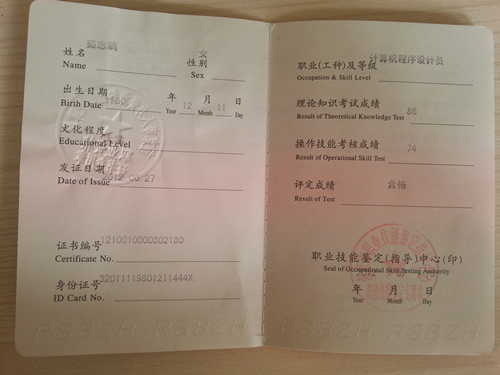 姓名
Name
女
性别
Sex
出生日期 年 12 月 11 日
Birth Date Year Month Day
文化程度
Educational Level
发证日期
Date of Issue
证书编号 1210010000302180
Certificate No.
身份证号
ID Card No.
计算机程序设计员
职业(工种)及等级
Occupation & Skill Level
理论知识考试成绩 86
Result of Theoretical Knowledge Test
操作技能考核成绩 74
Result of Operational Skill Test
评定成绩 合格
Result of Test
职业技能鉴定(指导)中心(印)
Seal of Occupational Skill Testing Authority
年 月 日
Year Month Day
RSBZH RSBZH RSBZH RSBZH